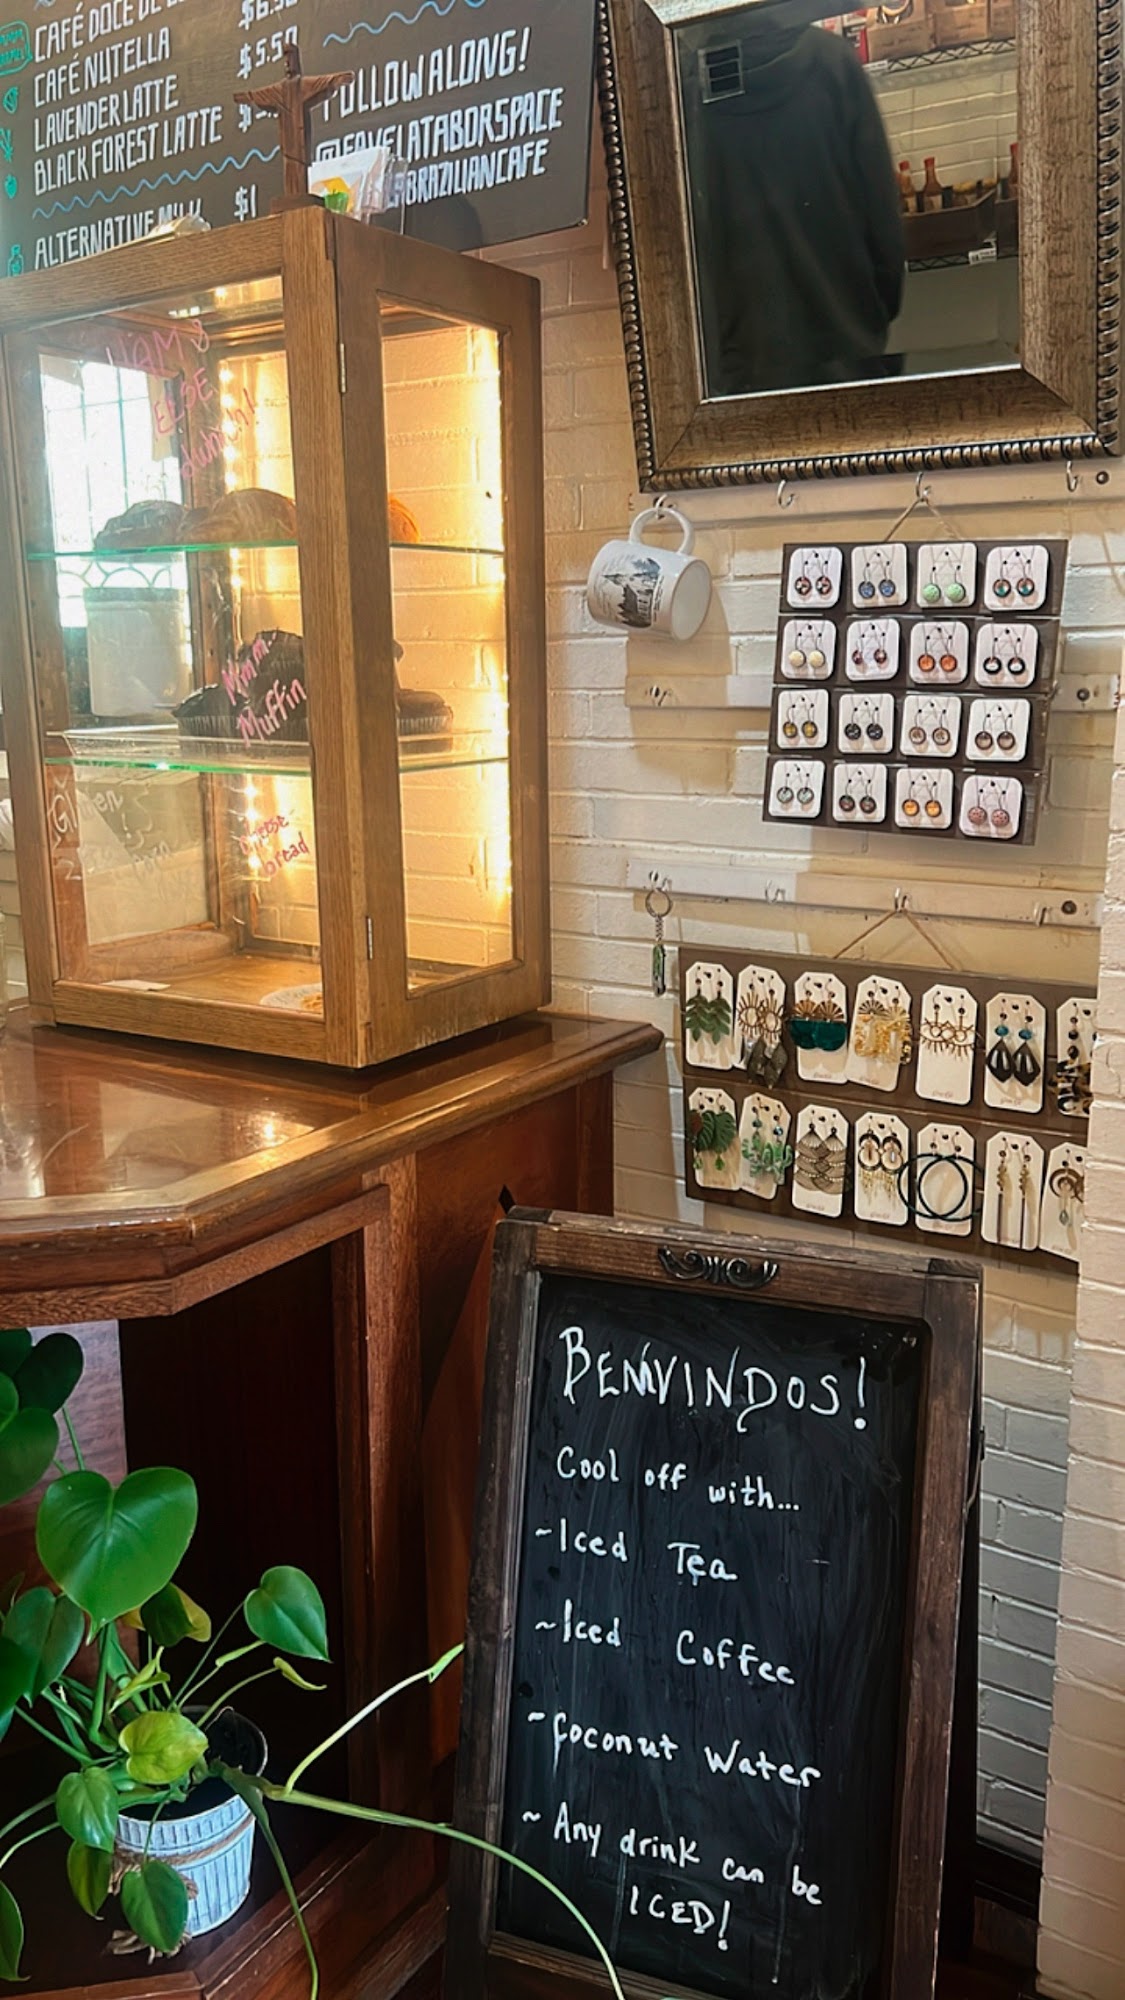 CAFÉ DOCE DE
CAFÉ NUTELLA $5.50
LAVENDER LATTE
BLACK FOREST LATTE
ALTERNATIVE MILK $1
FOLLOW ALONG!
@FAVELATABORSPACE
BRAZILIANCAFE
HAM &
ELSE
Mmm
Muffin
cheese
bread
BEMVINDOS!
Cool off with...
~Iced Tea
~Iced Coffee
~Coconut Water
~Any drink can be
ICED!